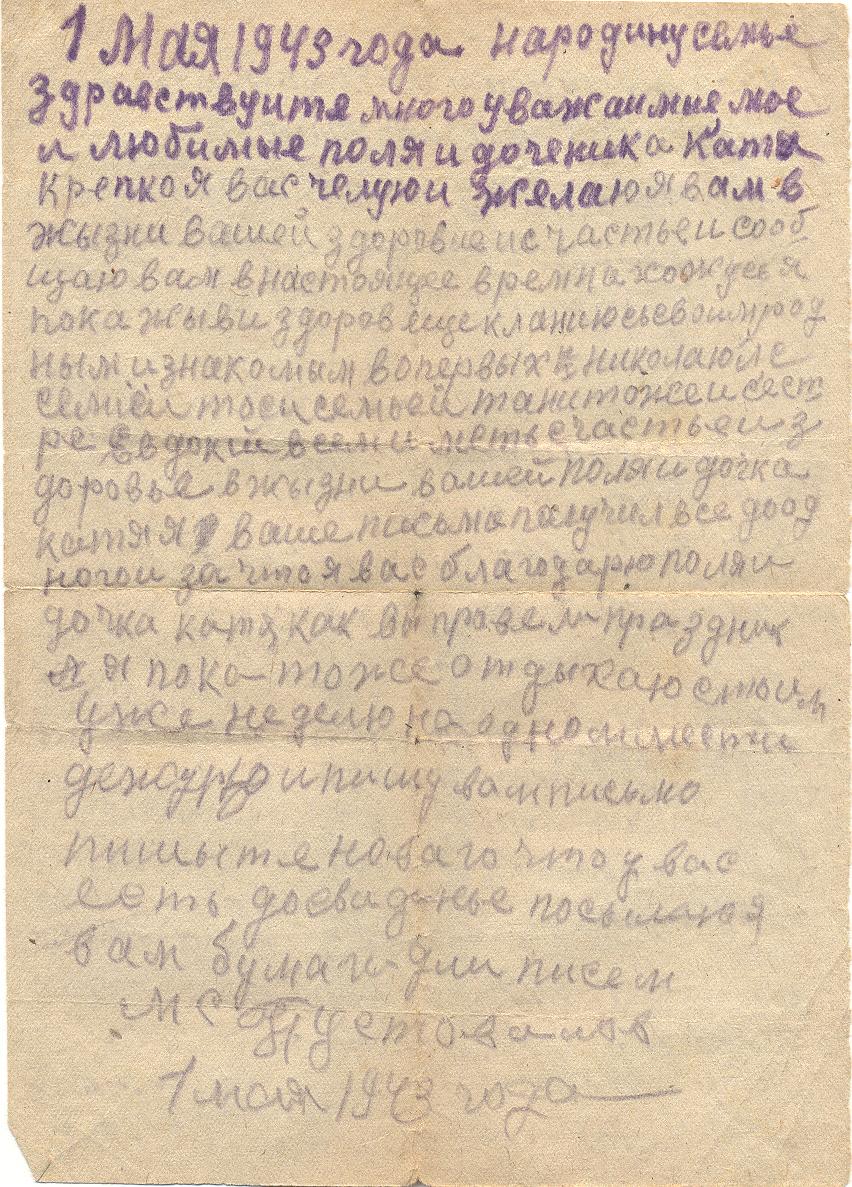 1 Мая 1943 года народину семье
Здравствуитя много уважаимые мое
и любимые поля и доченика Катя
крепко я вас челую и желаю я вам в
жызни вашей здоровие и счастье и сооб
щаю вам в настоящее время нахожусья
пока жыв и здоров еще кланиюсь своим род
ным и знакомым вопервых Николаю и с
семией тоси семьей тани тоже и сест
ре Евдокии всем иметь счастье и з
доровье в жызни вашей поля и дочка
катя я ваше письмо получил все до од
ного и за что я вас благодарю поля и
дочка катя как вы провели праздник
я пока тоже отдыхаю стоим
уже неделю на одном мести
дежурю и пишу вам письмо
пишытя новаго что у вас
есть досвиданье посылаю я
вам бумаги для писем
МС Пустовалов
1 мая 1943 года